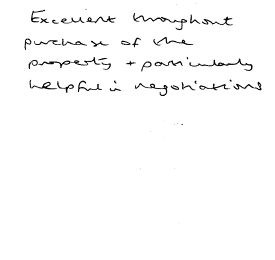 Excellent throughout
purchase of the
property + particularly
helpful in negotiations